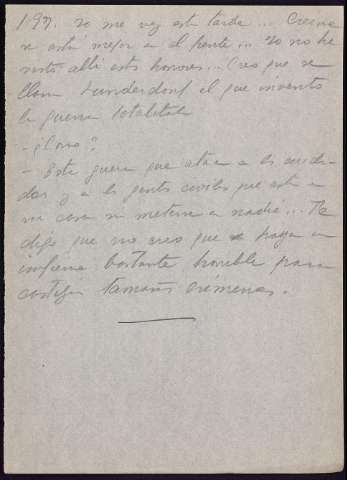 197. Yo me voy esta tarde... Creeme
se está mejor en el frente... Yo no he
visto allí estos horrores... Creo que se
llama Lunderdorf el que inventó
la guerra totalitaria
- ¿Como?
- Esta guerra que ataca a las ciuda-
des y a las gentes civiles que está en
su casa sin meterse a nadie... Te
digo que no creo que haya un
infierno bastante horrible para
castigar tamaños crímenes.